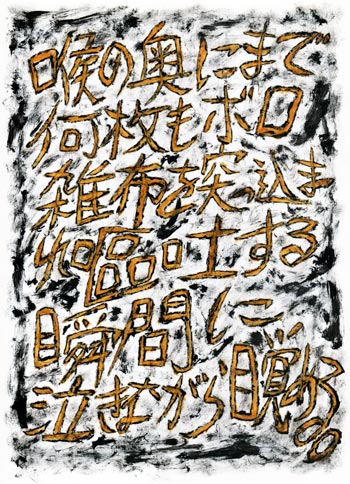 喉の奥にまで
何枚もボロ
雑布を突っ込ま
れ嘔吐する
瞬間に
泣きながら目覚める。